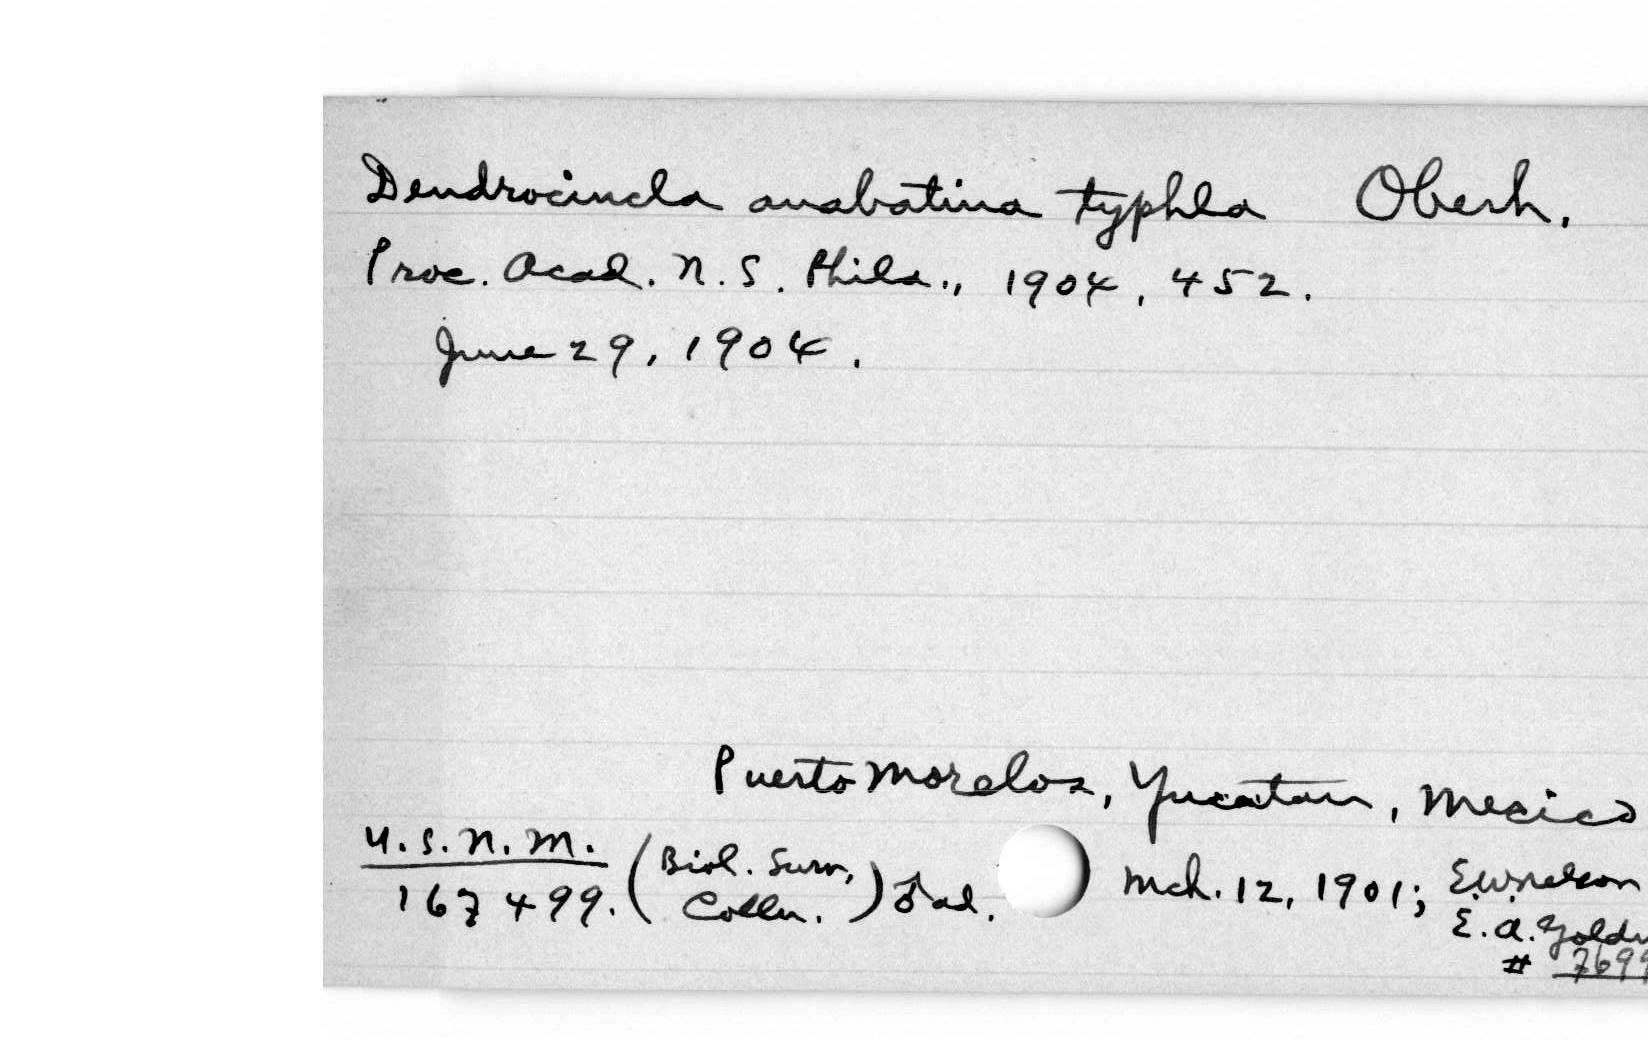 Dendrocincla anabatina typhla Oberh.
Proc. Acad. N. S. Phila., 1904, 452.
June 29, 1904.
Puerto Morelos, Yucatan, Mexico
U.S.N.M.
167499. (Biol. Surv. Colln.) ♂ ad. Mch. 12, 1901; E.W. Nelson
E. A. Goldm
# 7699